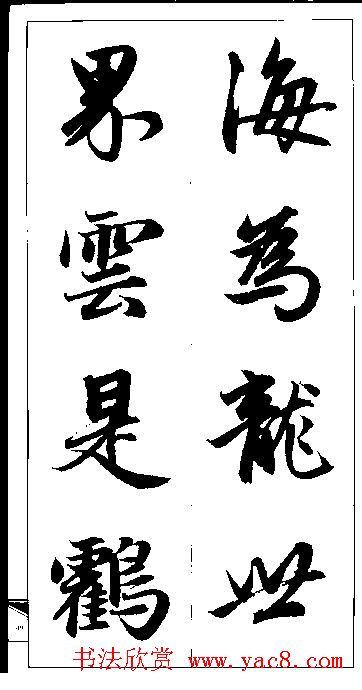 海為龍世
界雲是鸖
书法欣赏 www.yac8.com